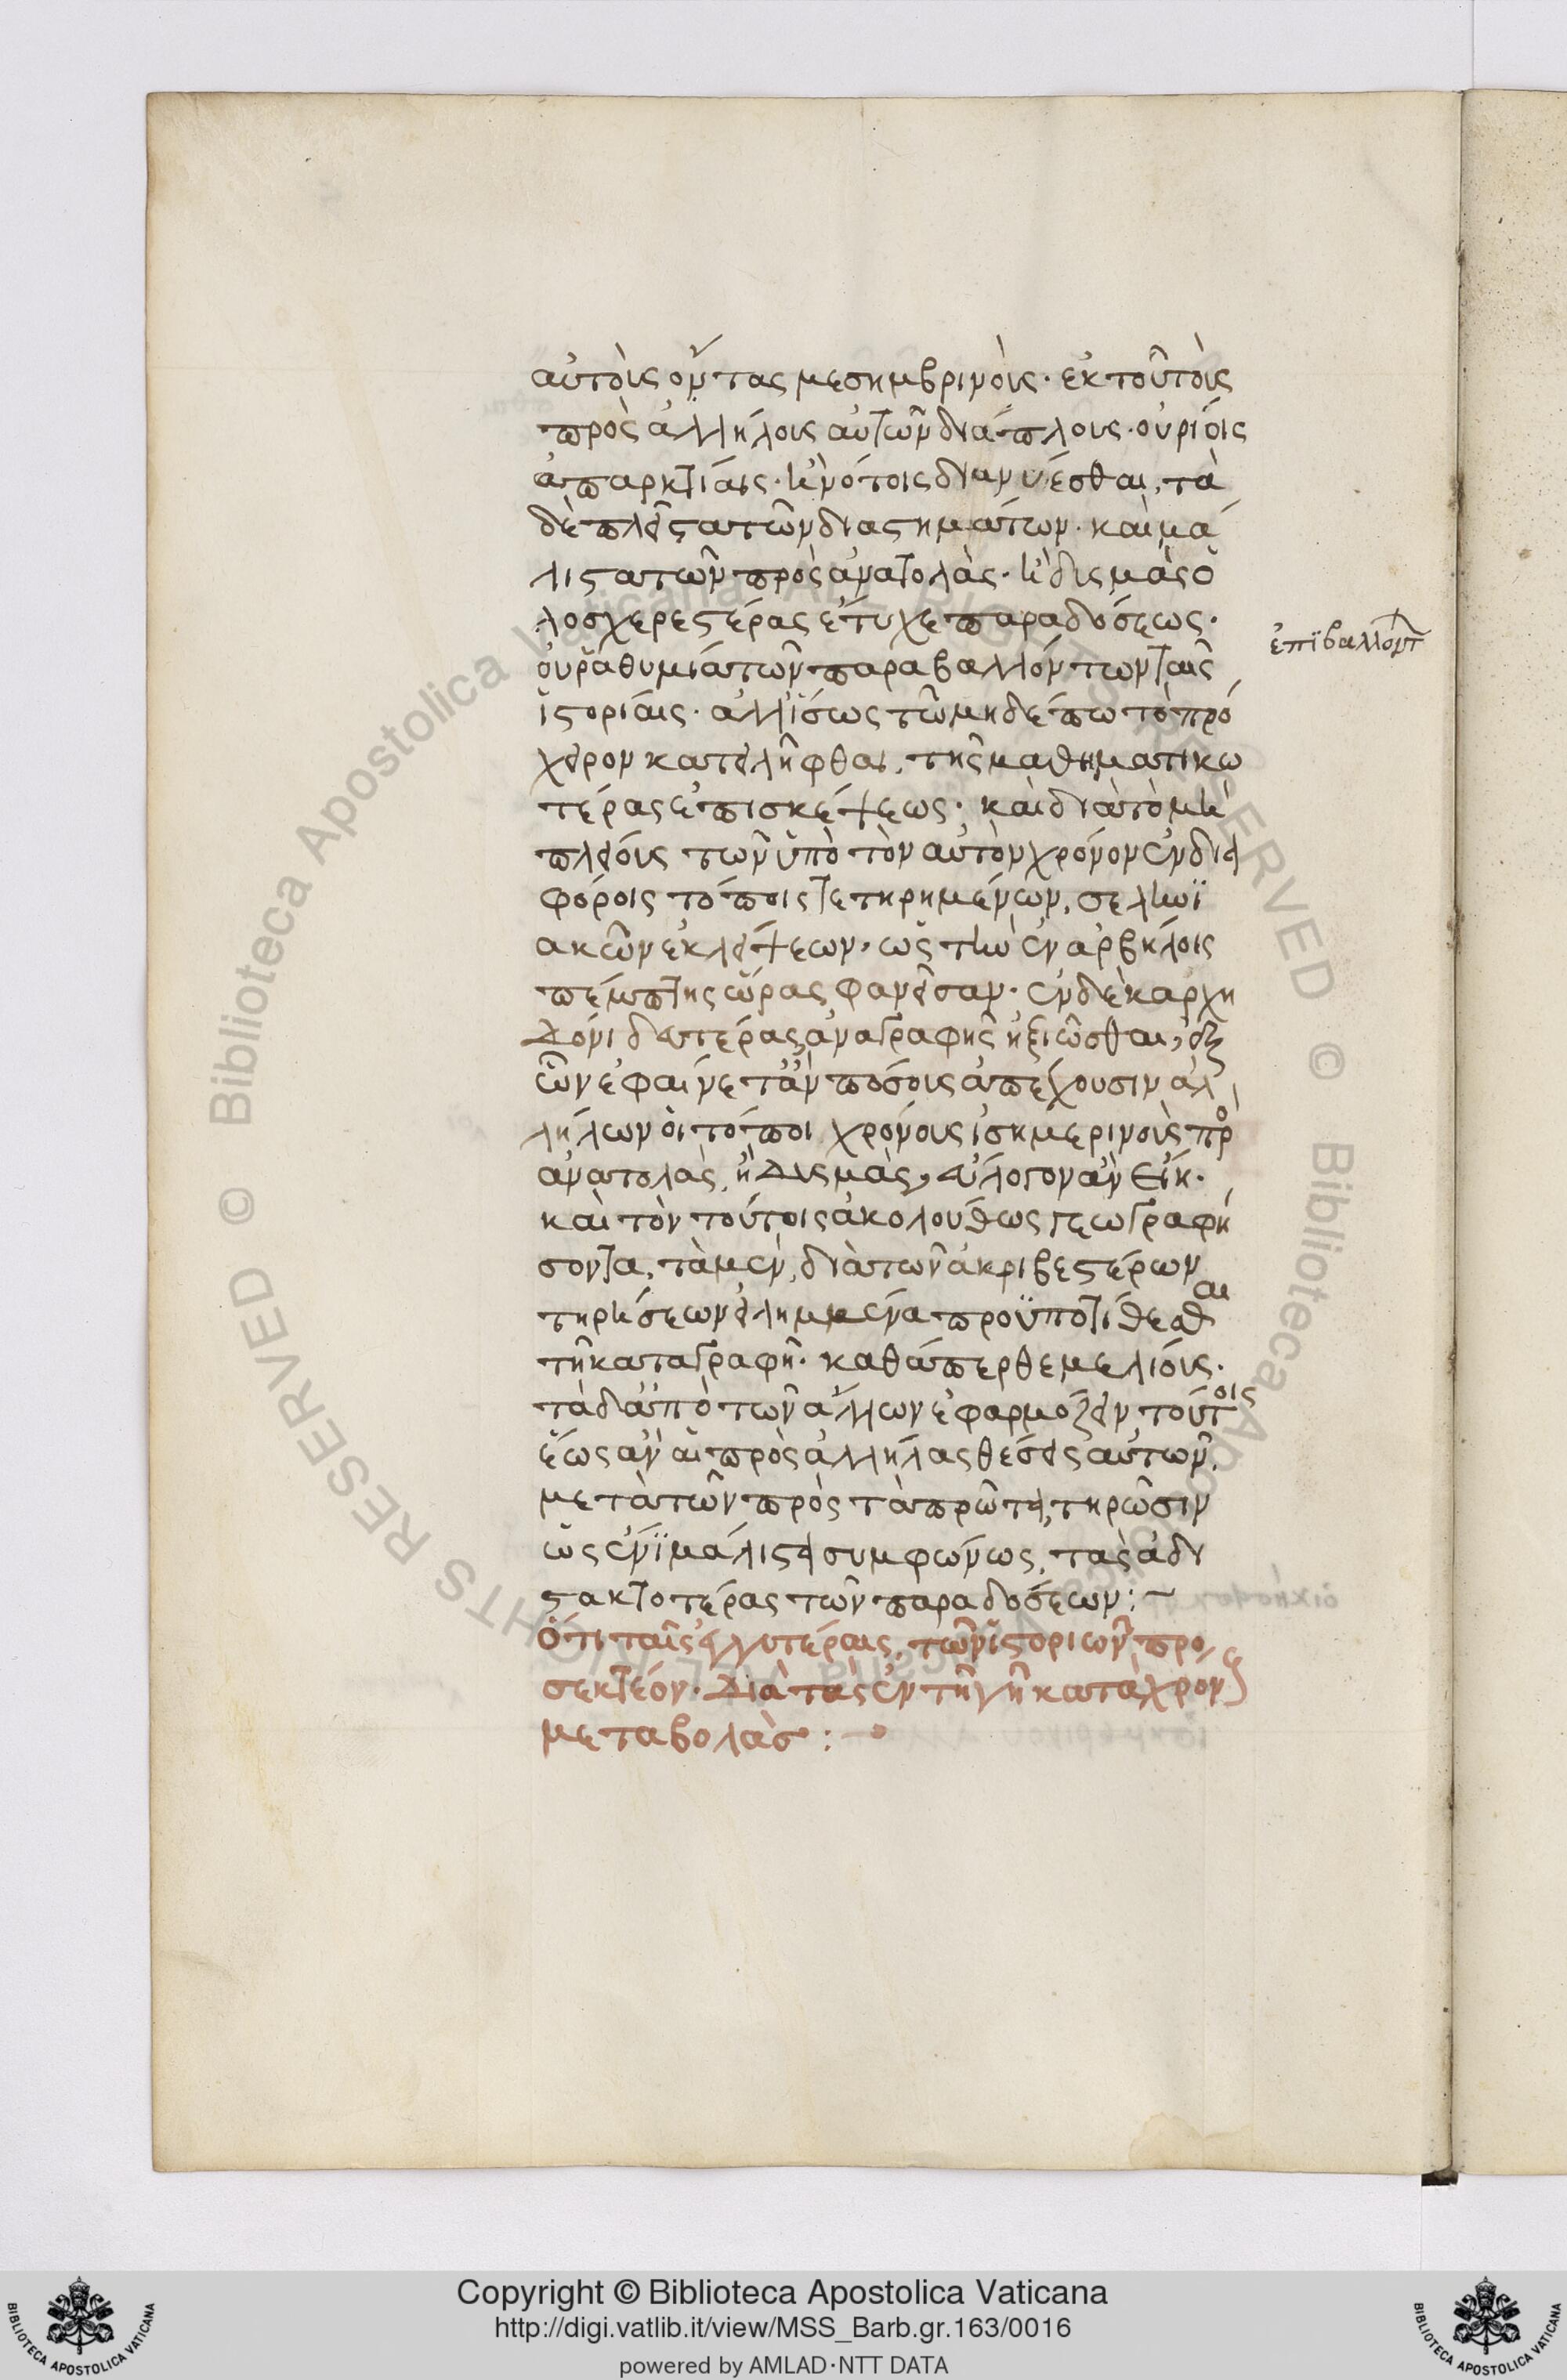 αὐτοὺς ὄντας μεσημβρινοὺς· ἐκ τοῦ τοὺς
πρὸς ἀλλήλους αὐτῶν διάπλους· οὐρίοις
ἀπαρκτίαις· ἢ νότοις διανύεσθαι, τὰ
δὲ πλεῖστα τῶν διαστημάτων· καὶ μά
λιστα τῶν πρὸς ἀνατολὰς· ἢ δισμὰς ὁ
λοσχερεστέρας ἔτυχε παραδόσεως·
οὐ ῥαθυμία τῶν παραβαλλόντων ταῖς
ἱστορίαις· ἀλλ' ἴσως τῶ μηδέπω τὸ πρό
χειρον κατειλῆφθαι, τῆς μαθηματικω
τέρας ἐπισκέψεως· καὶ διὰ τὸ μὴ
πλείους τῶν ὑπὸ τὸν αὐτὸν χρόνον ἐν δια
φόροις τόποις τετηρημένων, σεληνϊ
ακῶν ἐκλείψεων· ὡς τὴν ἐν ἀρβήλοις
πέμπτης ὥρας φανεῖσαν· ἐν δὲ καρχη
δόνι δευτέρας, ἀναγραφῆς ἠξιῶσθαι, ἐξ
ὧν ἐφαίνετ' ἂν πόσους ἀπέχουσιν ἀλ
λήλων οἱ τόποι χρόνους ἰσημερινοὺς πρὸ
ἀνατολὰς, ἢ δισμὰς, εὔλογον ἂν εἴη·
καὶ τὸν τούτοις ἀκολούθως γεωγραφή
σοντα, τὰ μὲν, διὰ τῶν ἀκριβεστέρων
τηρήσεων εἰλημμένα προϋποτίθεσθαι
τῆ καταγραφῆ· καθάπερ θεμελίους·
τὰ δ' ἀπὸ τῶν ἄλλων ἐφαρμόζειν τούτοις
ἕως ἂν αἱ πρὸς ἀλλήλας θέσεις αὐτῶν,
μετὰ τῶν πρὸς τὰ πρῶτα, τηρῶσιν
ὡς ἔνϊ μάλιστα συμφώνως, τὰς ἀδι
στακτοτέρας τῶν παραδόσεων:~
Ὅτι ταῖς ἐγγυτέραις, τῶν ἱστοριῶν προ
σεκτέον· Διὰ τὰς ἐν τῆ γῆ κατὰ χρόν
μεταβολάσ:
ἐπϊβαλλόντ
Copyright © Biblioteca Apostolica Vaticana
http://digi.vatlib.it/view/MSS_Barb.gr.163/0016
powered by AMLAD·NTT DATA
BIBLIOTECA APOSTOLICA VATICANA
BIBLIOTECA APOSTOLICA VATICANA